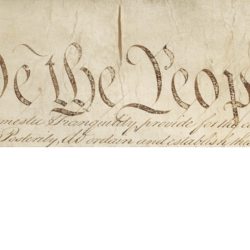 e the Peop
mestic Tranquility, provide for the
Posterity, do ordain and establish thi